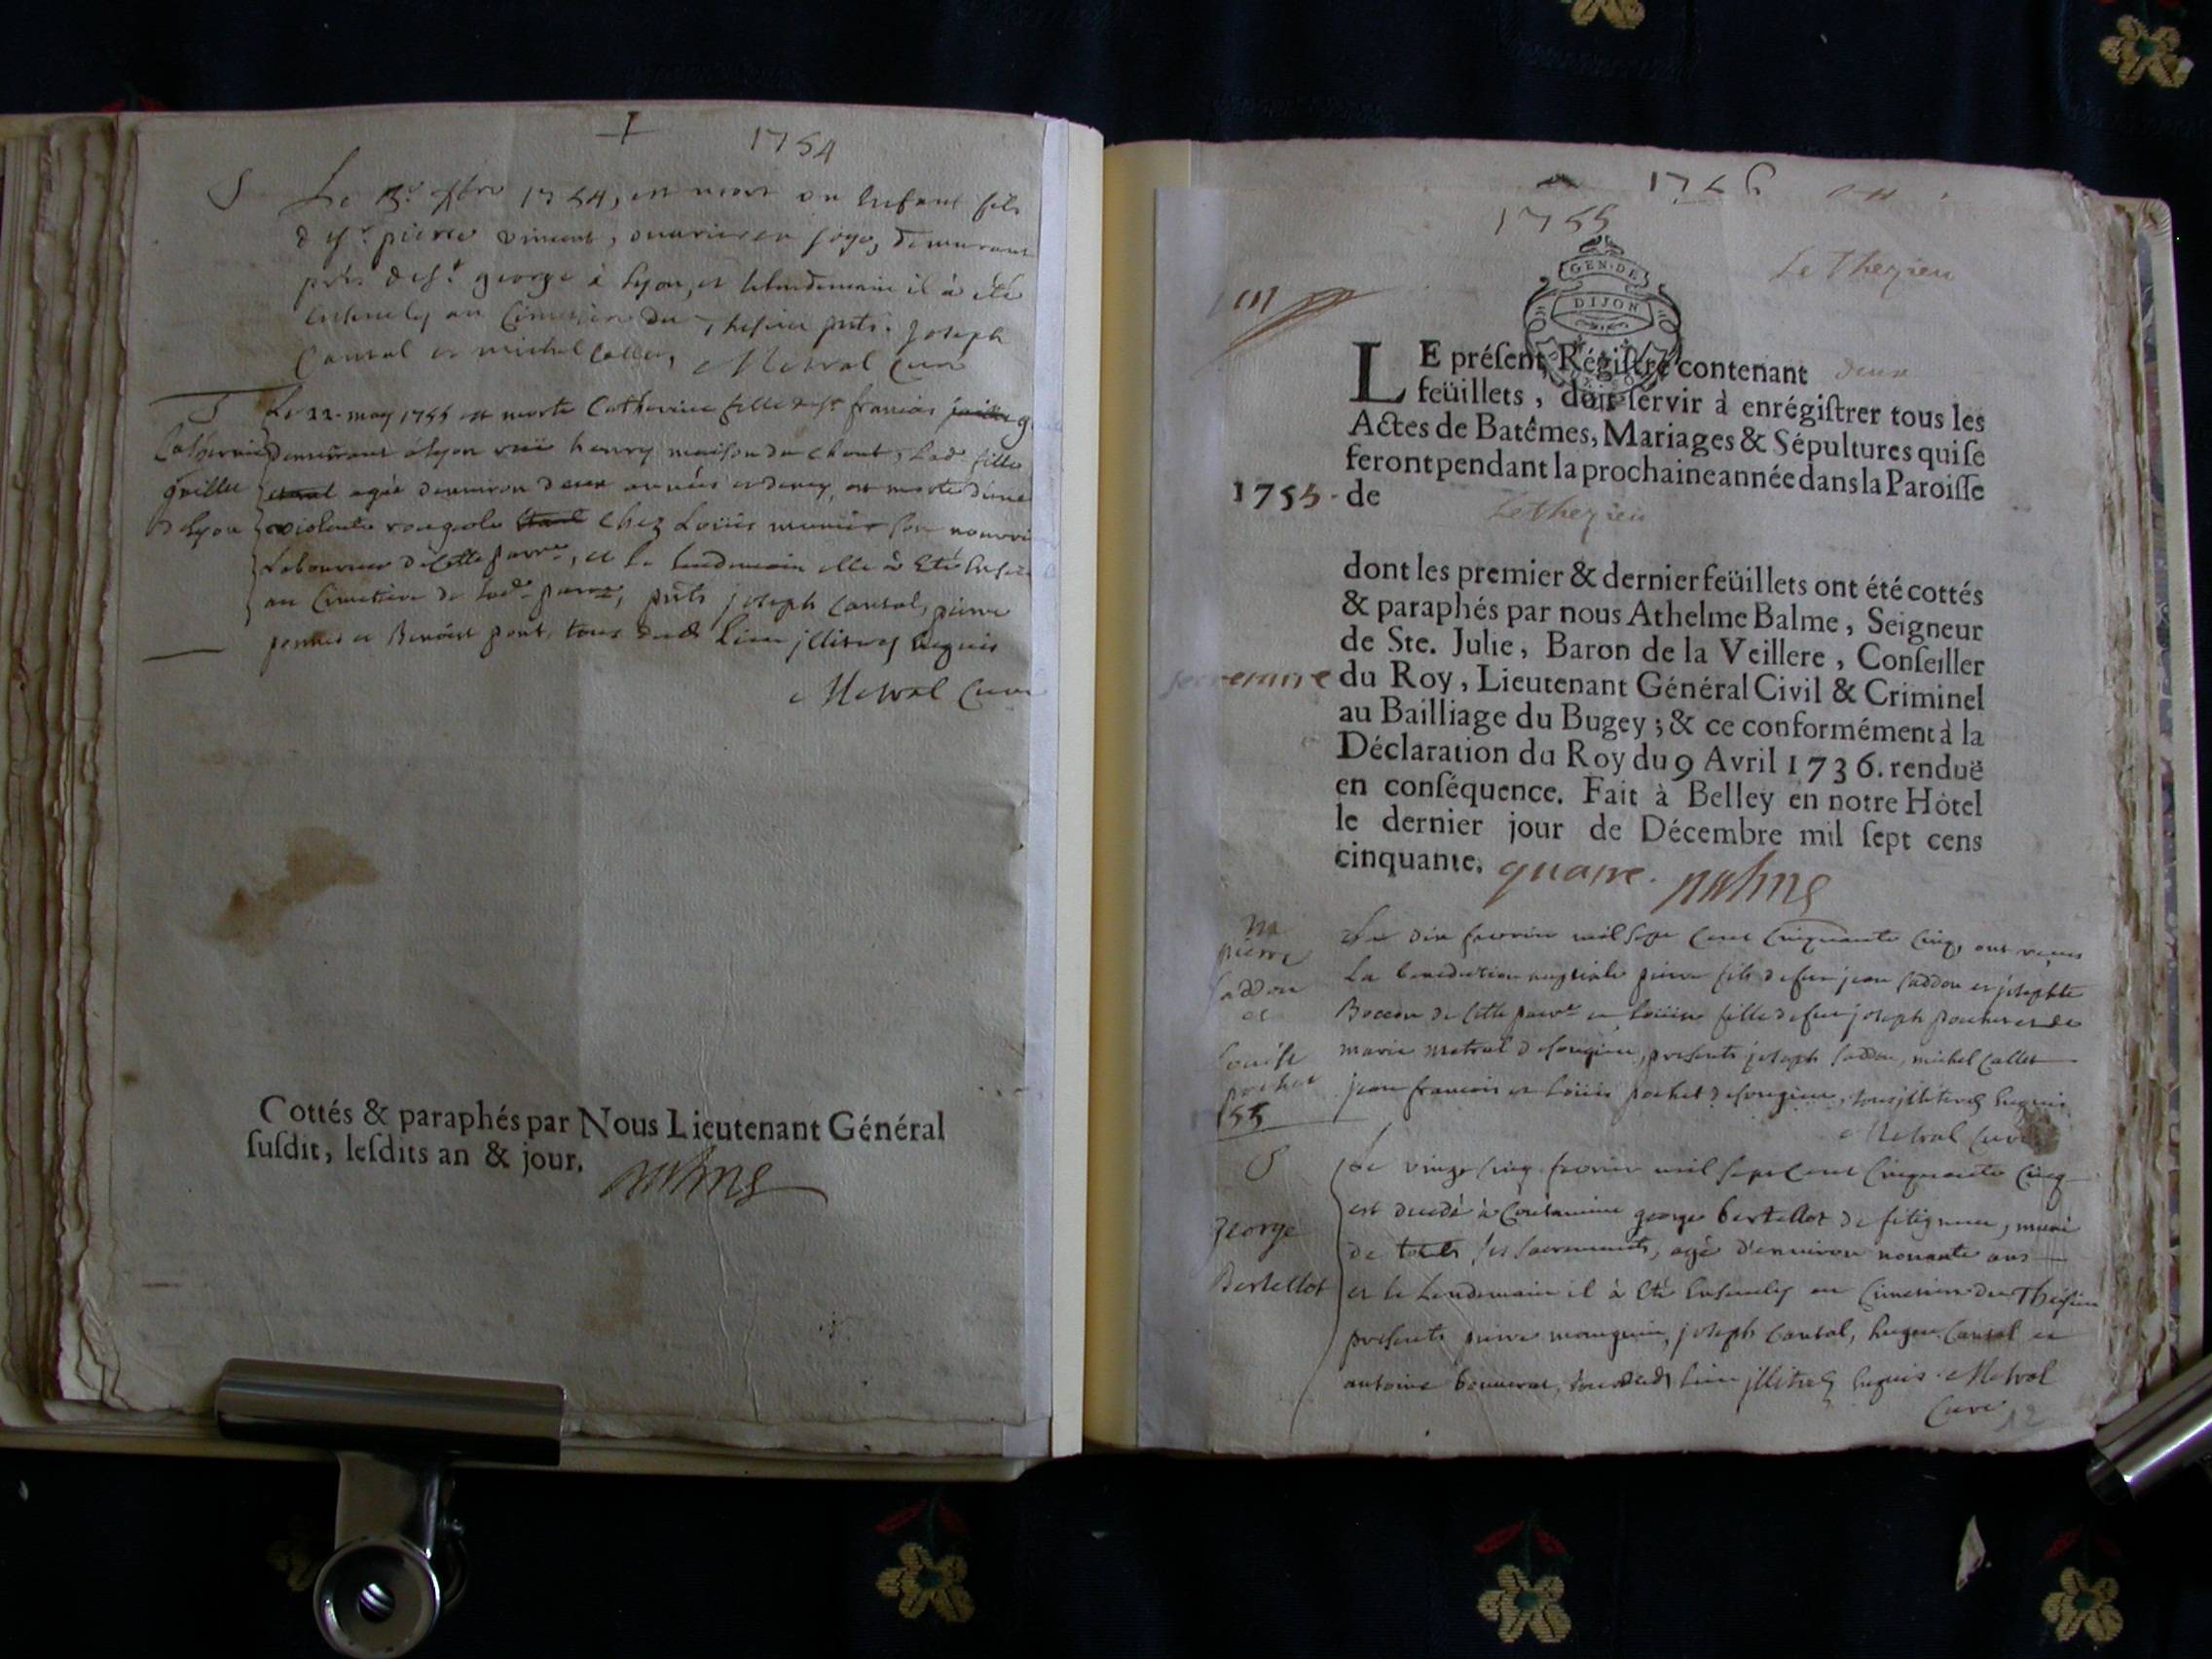 1754
S Le 13e 1754, est mort un Enfant fils
de sr pierre vincent, ouvrier en soye, demeurant
près de st george à Lyon, et le lendemain il à été
Ensevely au Cimetière du Thesieu prts. Joseph
Cantal et michel Callet, Metral Curé
S Le 22 may 1755 est morte Catherine fille de sr francois
Catherine demeurant à Lyon rue henry maison du Chant, Lad. fille
grillet agée d'environ deux années et demy, est morte d'une
de Lyon violente rougeole Chez Loüis munier son nourri
Laboureur de Cette parre, et le lendemain elle à Eté
au Cimetière de lad. parre, prts joseph Cantal, pierre
et Benoist pont, tous dud. Lieu jllitrés Enquis
Metral Curé
Cottés & paraphés par Nous Lieutenant Général
ſuſdit, leſdits an & jour.
1755
Le Thezieu
GEN·DE
DIJON
LE préſent Régiſtre contenant deux
feüillets, doit ſervir à enrégiſtrer tous les
Actes de Batêmes, Mariages & Sépultures qui ſe
feront pendant la prochaine année dans la Paroiſſe
1755 de Le thezieu
dont les premier & dernier feüillets ont été cottés
& paraphés par nous Athelme Balme, Seigneur
de Ste. Julie, Baron de la Veillere, Conſeiller
du Roy, Lieutenant Général Civil & Criminel
au Bailliage du Bugey; & ce conformément à la
Déclaration du Roy du 9 Avril 1736. renduë
en conſéquence. Fait à Belley en notre Hôtel
le dernier jour de Décembre mil ſept cens
cinquante. quatre.
M
pierre
Laddou
et
Louise
pochet
155
Le dix fevrier mil sept Cent Cinquante Cinq, ont reçus
La benediction nuptiale pierre fils de feu jean Laddou et josephte
de Cette parre et Loüise fille de feu joseph pochet et de
marie metral de songieu, presents joseph Laddou, michel Callet
jean francois et Loüis pochet de songieu, tous jllitrés Enquis
Metral Curé
S
george
Bertellot
Le vingt Cinq fevrier mil sept Cent Cinquante Cinq
est decedé à george bertellot de fitignieu, muni
de touts ses sacrements, agé d'environ nonante ans
et le Lendemain il à Eté Ensevely au Cimetiere du Thesieu
presents pierre mouguin, joseph Cantal, hugue Cantal et
antoine bonnerat, tous dud. Lieu jllitrés Enquis. Metral
Curé